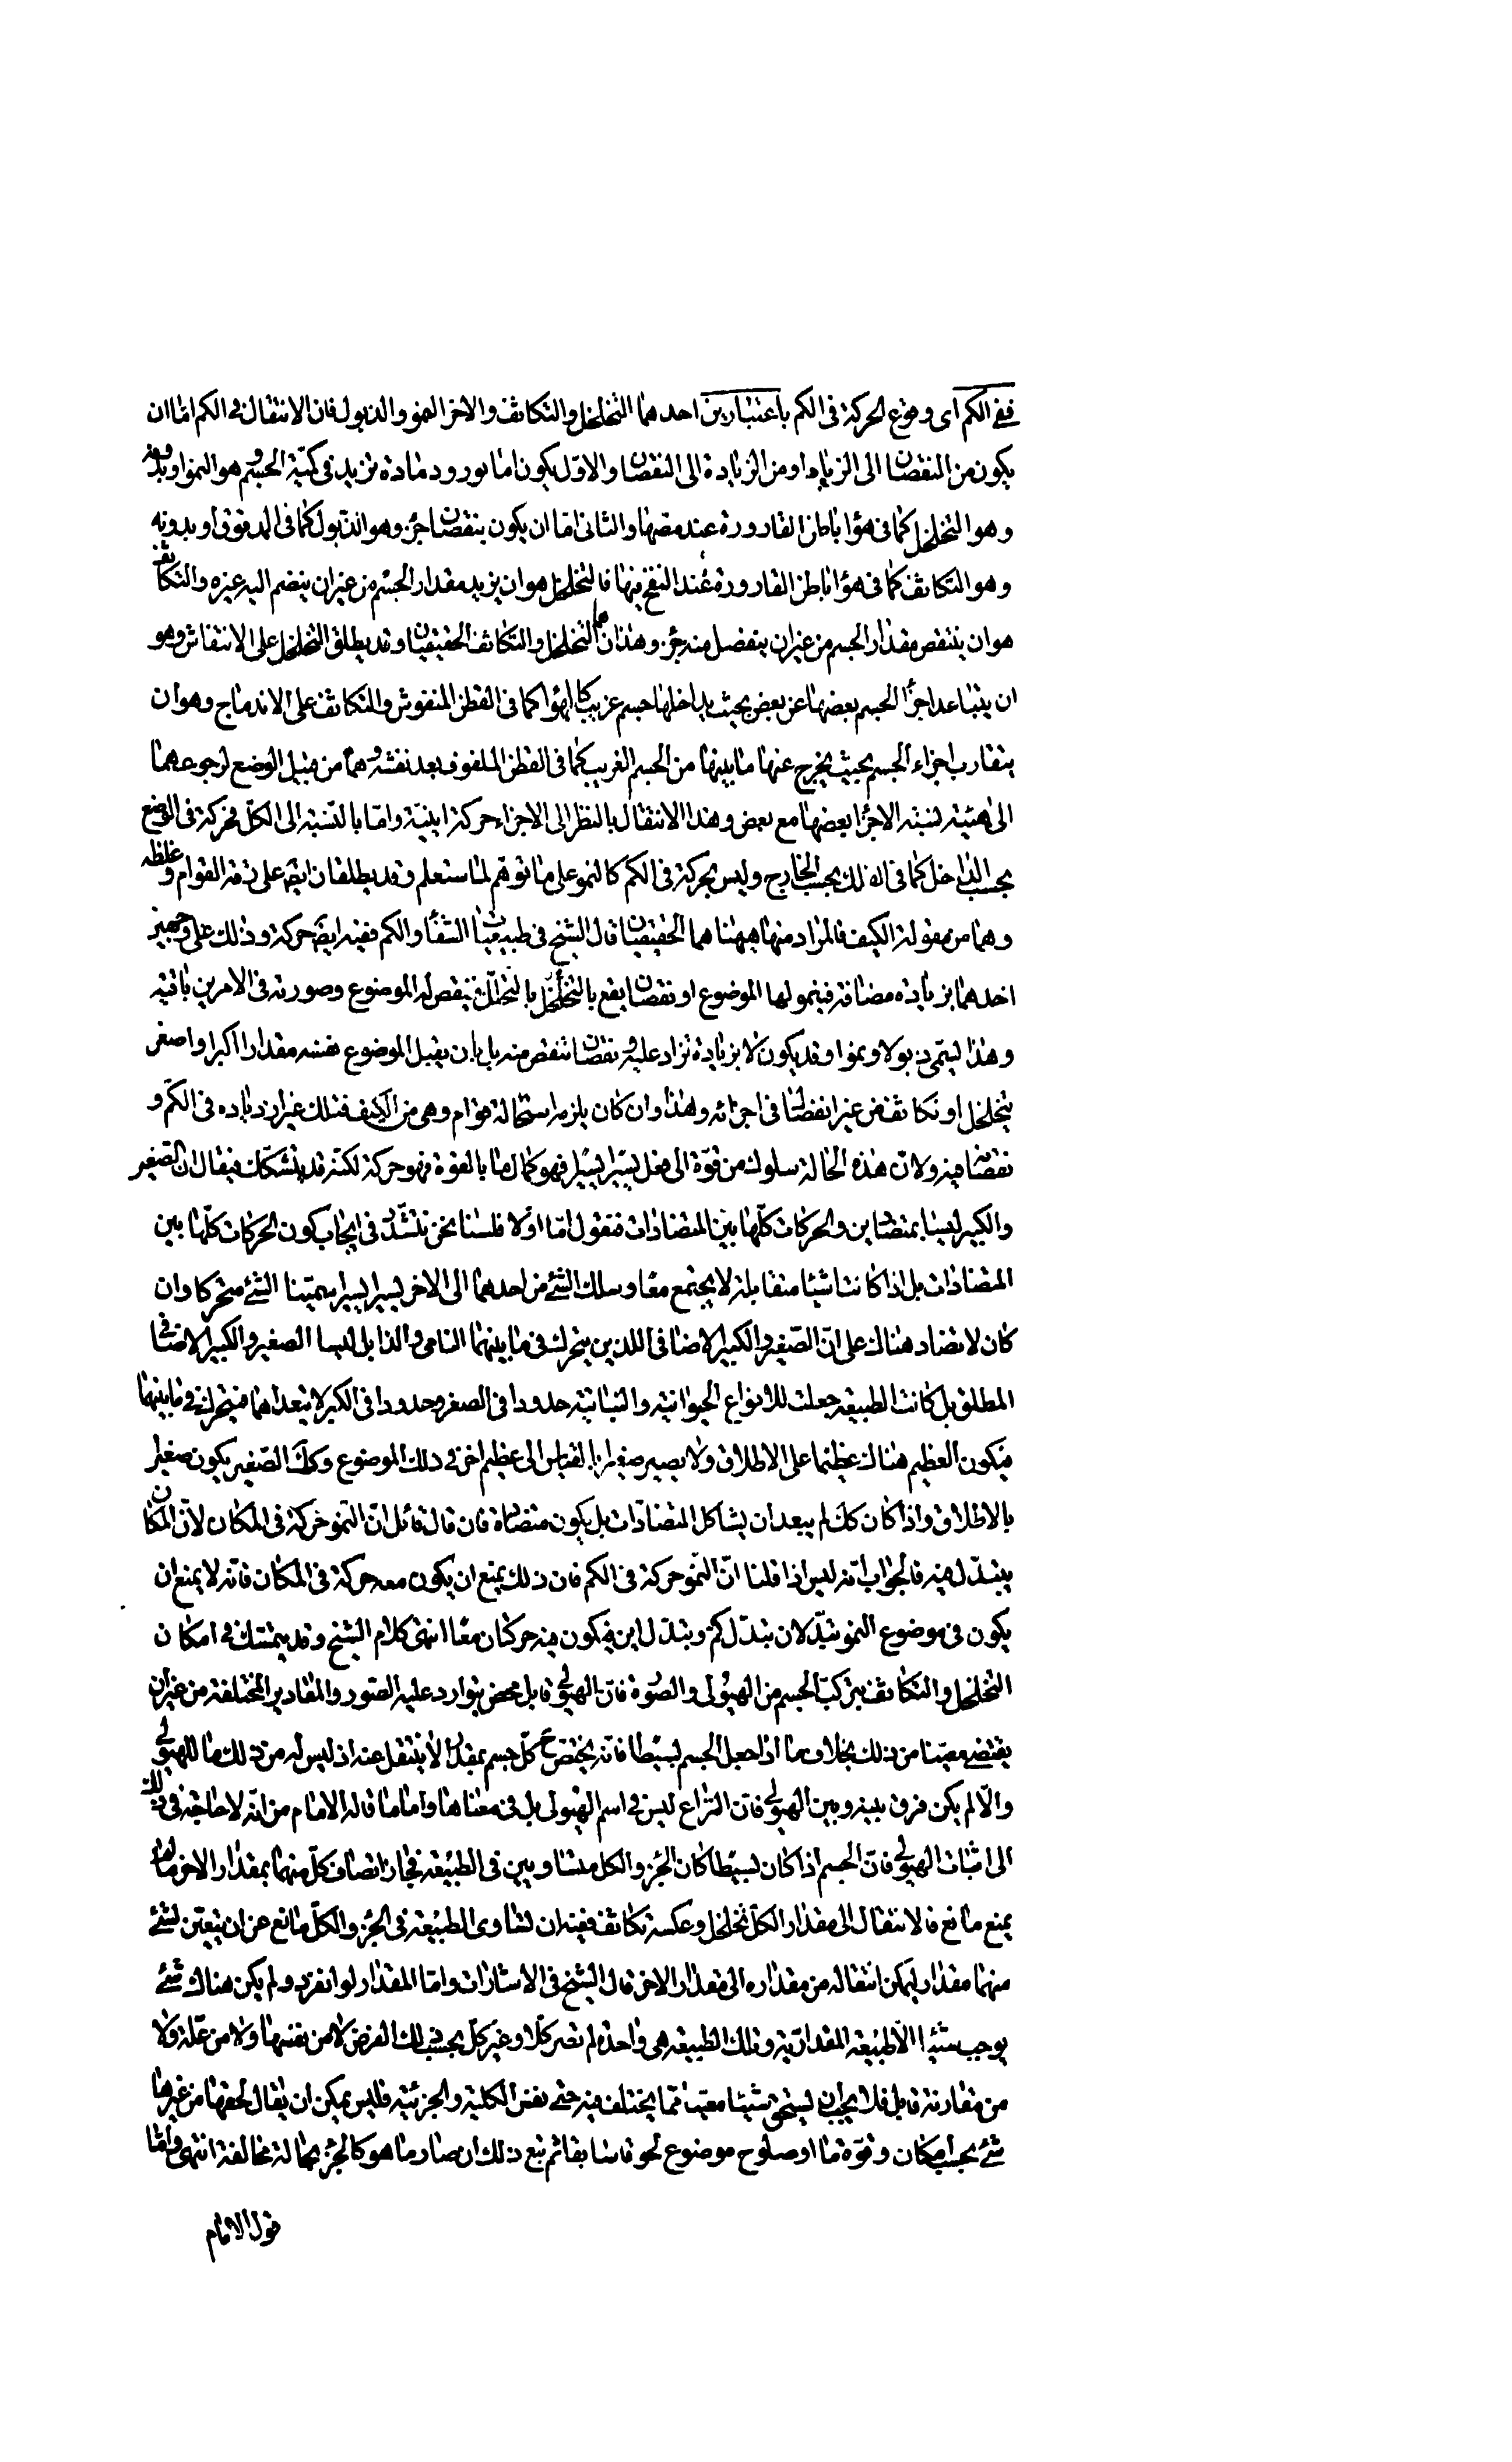 ففى الكم اى وقوع الحركة فى الكم باعتبارين احدهما التخلخل والتكاثف والاخر النمو والذبول فان الانتقال فى الكم اما ان
يكون من النقصان الى الزيادة او من الزيادة الى النقصان والاوّل يكون اما بورود مادة تزيد فى كميّة الجسم وهو النمو او بدونه
وهو التخلخل كما فى هواء باطن القارورة عند مصّها والثانى امّا ان يكون بنقصان اجزاء وهو الذبول كما فى المدقوق او بدونه
وهو التكاثف كما فى هواء باطن القارورة عند النفخ فيها فالتخلخل هو ان يزيد مقدار الجسم من غير ان ينضم اليه غيره والتكاثف
هو ان ينتقص مقدار الجسم من غير ان ينفصل منه جزء وهذان هما التخلخل والتكاثف الحقيقيان وقد يطلق التخلخل على الانتفاش وهو
ان يتباعد اجزاء الجسم بعضها عن بعض بحيث يداخلها جسم غريب كالهواء كما فى القطن المنفوش والتكاثف على الاندماج وهو ان
يتقارب اجزاء الجسم بحيث يخرج عنها ما بينها من الجسم الغريب كما فى القطن الملفوف بعد نفشه وهما من قبيل الوضع لرجوعهما
الى هيئة نسبة الاجزاء بعضها مع بعض وهذا الانتقال بالنظر الى الاجزاء حركة اينيّة وامّا بالنسبة الى الكلّ فحركة فى الوضع
بحسب الداخل كما فى الفلك بحسب الخارج وليس بحركة فى الكم كالنمو على ما توهّم لما ستعلم وقد يطلقان ايضا على رقة القوام وغلظه
وهما من مقولة الكيف فالمراد منها ههنا هما الحقيقيان قال الشيخ فى طبيعيات الشفاء والكم ففيه ايضا حركة وذلك على وجهين
احدهما بزيادة مضافة فينمو لها الموضوع او نقصان يقع بالتحلل فينقص له الموضوع وصورته فى الامرين باقية
وهذا ليسمّى ذبولا ونموا وقد يكون لا بزيادة تزاد عليه ونقصان تنقص منه بل بان يقبل الموضوع نفسه مقدارا اكبر او اصغر
بتخلخل او تكاثف من غير انفصال فى اجزائه وهذا وان كان يلزمه استحالة قوام وهى من الكيف فتلك غير ازدياده فى الكمّ و
نقصانه فيه ولانّ هذه الحالة سلوك من قوّة الى فعل يسيرا يسيرا فهو كمال ما بالقوة فهو حركة لكنّه قد يتشكّك فيقال انّ الصغير
والكبير ليسا بمتضادين والحركات كلّها بين المتضادات فنقول اما اوّلا فلسنا نحن نتشدّد فى ايجاب كون الحركات كلّها بين
المتضادات بل اذا كانت اشياء متقابلة لا يجتمع معا وسلك الشئ من احدهما الى الاخر يسيرا يسيرا سمّينا الشئ متحركا وان
كان لا تضاد هناك على انّ الصّغير والكبير الاضافى اللذين يتحرك فيما بينهما النامى والذابل ليسا الصغير والكبير الاضافى
المطلق بل كانت الطبيعة جعلت للانواع الحيوانية والنباتية حدودا فى الصغر وحدودا فى الكبر لا يتعداهما فيتحرك فيما بينهما
فيكون العظيم هناك عظيما على الاطلاق ولا يصير صغيرا بالقياس الى عظيم اخر فى ذلك الموضوع وكك الصّغير يكون صغيرا
بالاطلاق واذا كان كك لم يبعد ان يشاكل المتضادات بل يكون متضادة فان قال قائل انّ النمو حركة فى المكان لانّ المكان
يتبدّل فيه فالجواب انّه ليس اذا قلنا انّ النّمو حركة فى الكم فان ذلك يمنع ان يكون معه حركة فى المكان فانّه لا يمنع ان
يكون فى موضوع النمو تبدّلان تبدّل كم وتبدّل اين فيكون فيه حركتان معا انتهى كلام الشيخ وقد يتمسّك فى امكان
التخلخل والتكاثف بتركّب الجسم من الهيولى والصورة فانّ الهيولى قابل محض يتوارد عليه الصّور والمقادير المختلفة من غير ان
يقتضى معيّنا من ذلك بخلاف ما اذا جعل الجسم بسيطا فانّه يختصّ ح كلّ جسم بمقدار لا ينتقل عنه اذ ليس له من ذلك ما للهيولى
والّا لم يكن فرق بينه وبين الهيولى فانّ النزاع ليس فى اسم الهيولى بل فى معناها واما ما قاله الامام من انّه لا حاجة فى ذلك
الى اثبات الهيولى فانّ الجسم اذا كان بسيطا كان الجزء والكل متساويين فى الطبيعة فجاز اتصاف كلّ منهما بمقدار الاخر ما لم
يمنع مانع فالانتقال الى مقدار الكلّ تخلخل وعكسه تكاثف ففيه ان تساوى الطبيعة فى الجزء والكلّ مانع عن ان يتعيّن لشئ
منهما مقدار ليمكن انتقاله من مقداره الى مقدار الاخر قال الشيخ فى الاشارات وامّا المقدار لو انفرد ولم يكن هناك شئ
يوجب شيئا الّا طبيعة المقداريّة وتلك الطبيعة هى واحدة لم تصر كلّا وغير كلّ بحسب ذلك الفرض لا من نفسها ولا من علّة ولا
من مقارنة قابل فلا يجب ان يستحق شيئا معينا ممّا يختلف فيه حتى نفس الكلية والجزئية فليس يمكن ان يقال لحقها من غيرها
شئ بحسب امكان وقوّة ما او صلوح موضوع لحوقا سابقا ثم تبع ذلك ان صار ما هو كالجزء بحالة مخالفة انتهى وامّا
قول الامام